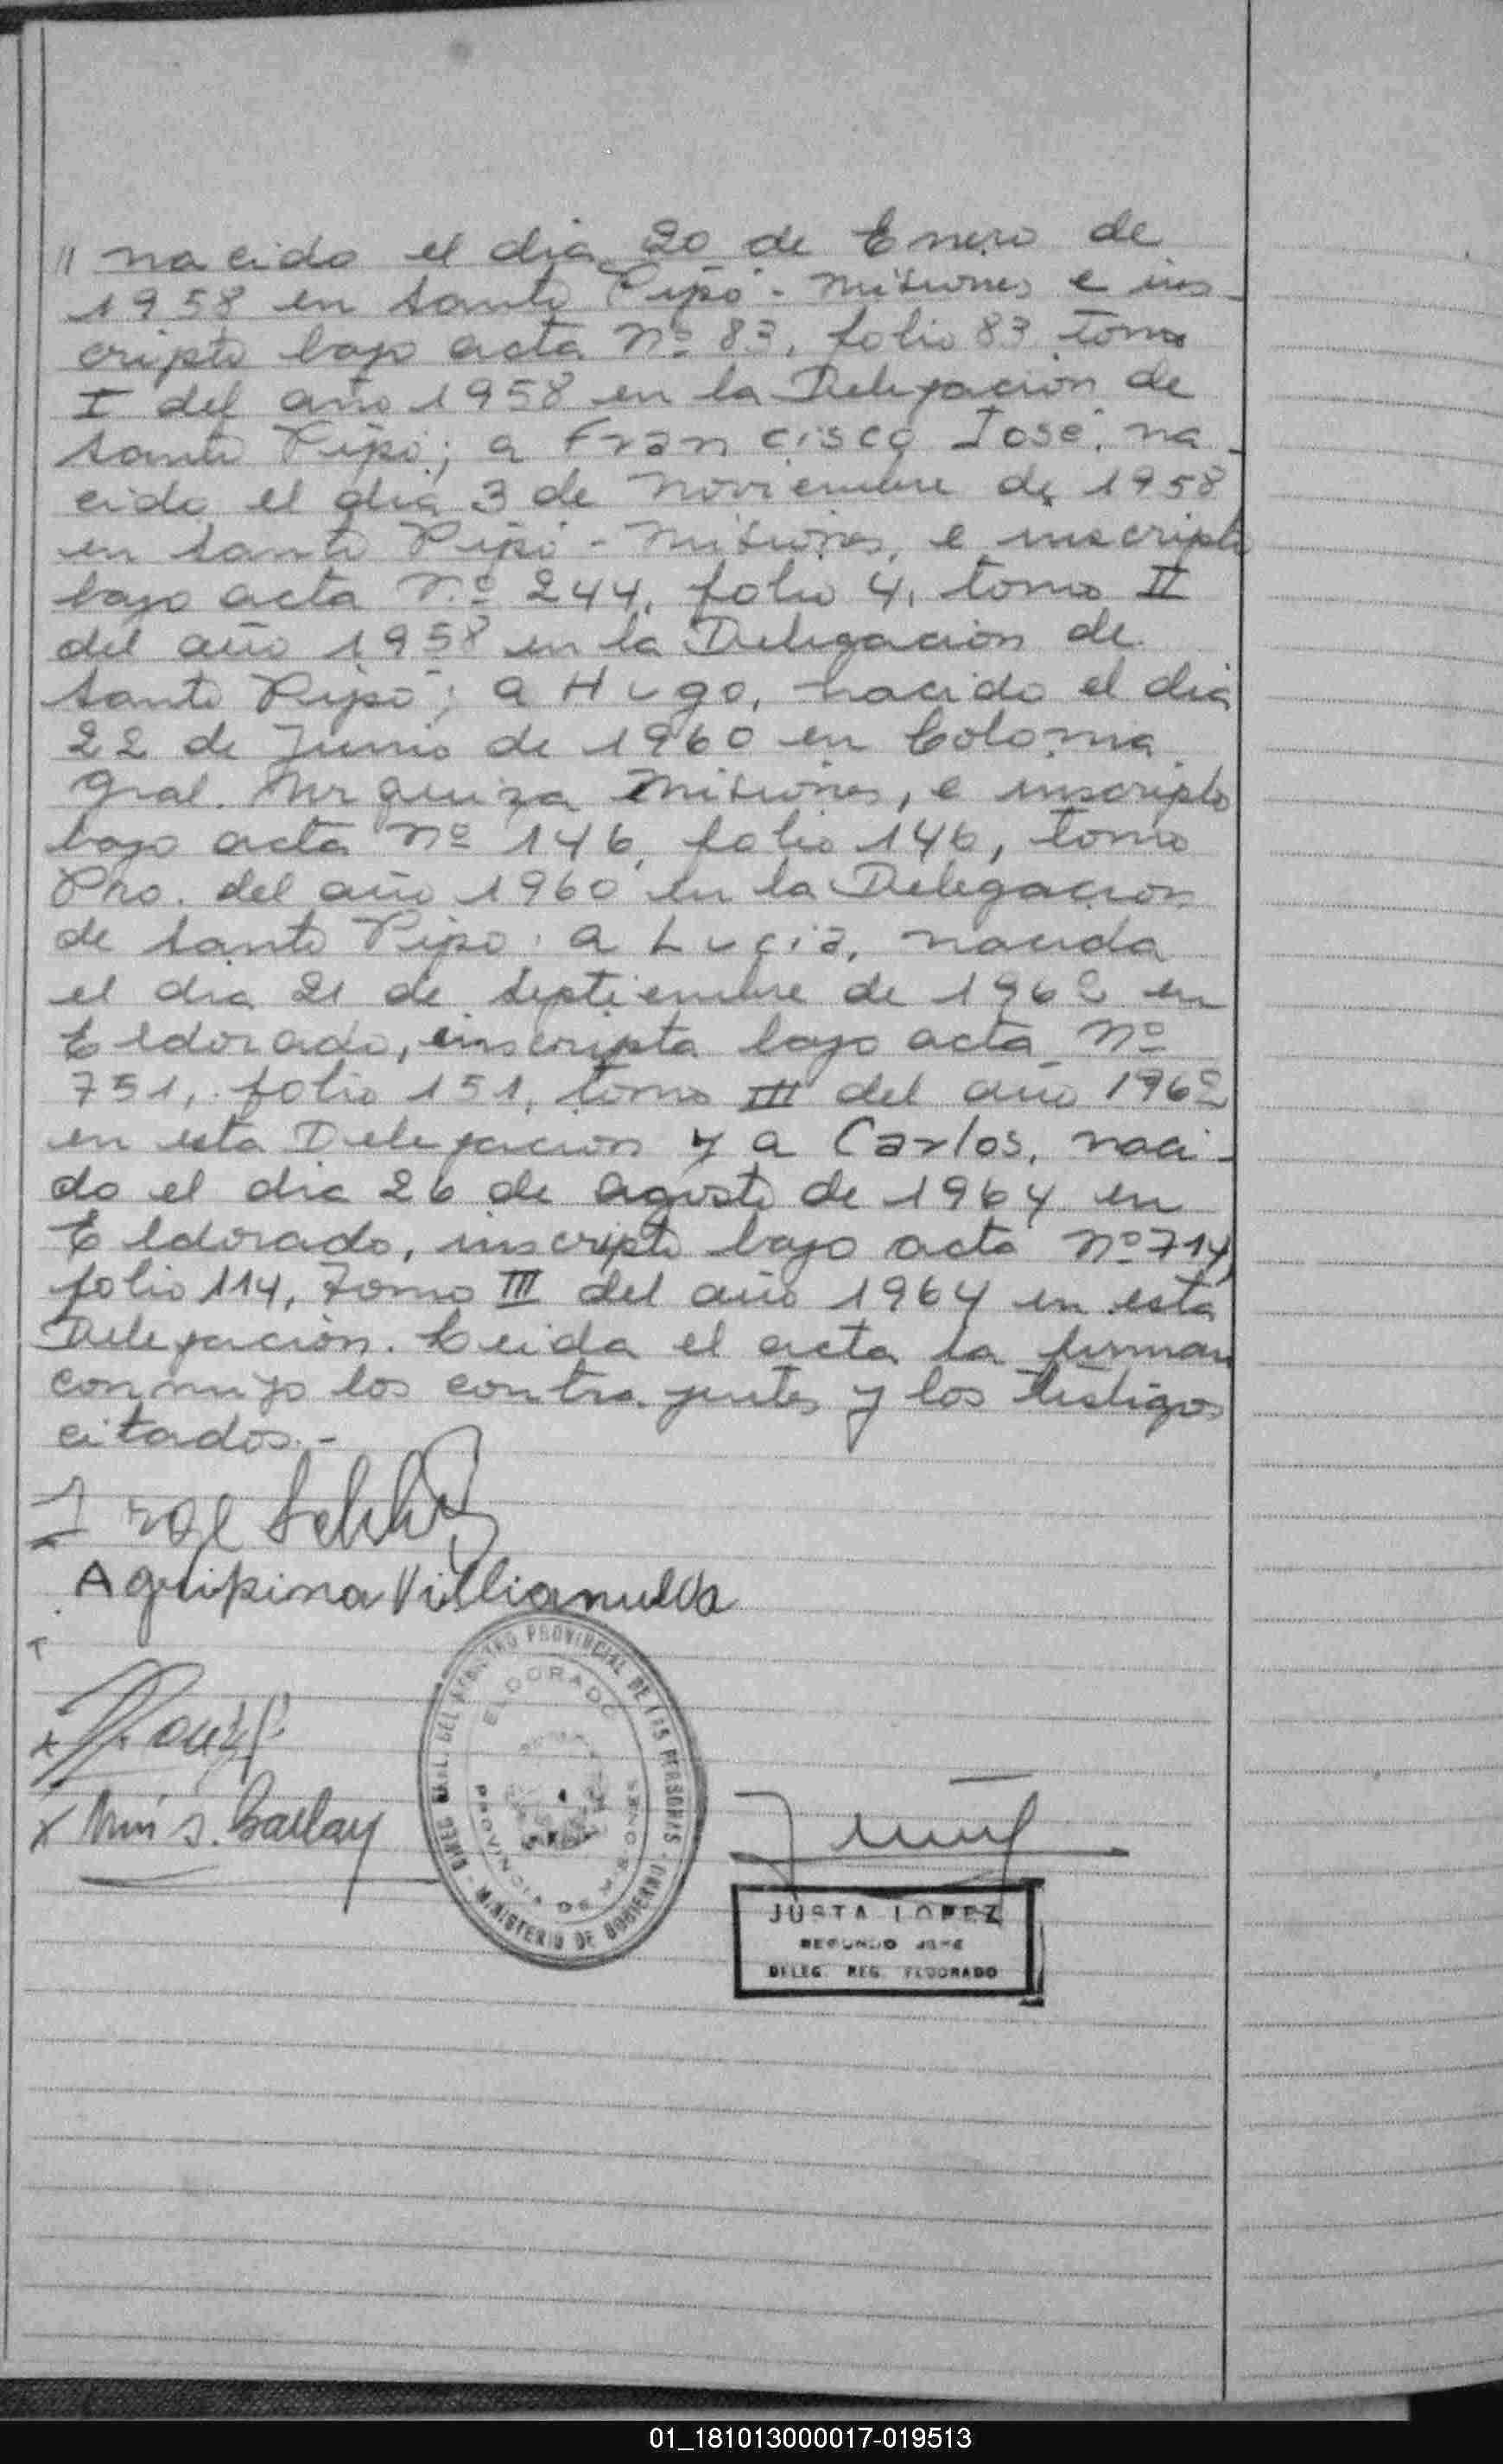 " nacido el dia 20 de Enero de
1958 en Santo Pipó - Misiones e ins-
cripto bajo acta Nº 83, folio 83 tomo
I del año 1958 en la Delegación de
Santo Pipó; a Francisco José, na-
cido el dia 3 de Noviembre de 1958
en Santo Pipó - Misiones, e inscripto
bajo acta Nº 244, folio 4, tomo II
del año 1958 en la Delegación de
Santo Pipó; a Hugo, nacido el dia
22 de Junio de 1960 en Colonia
Gral. Urquiza Misiones, e inscripto
bajo acta Nº 146, folio 146, tomo
del año 1960 en la Delegacion
de Santo Pipo; a Lucia, nacida
el dia 21 de Septiembre de 1962 en
Eldorado, inscripta bajo acta Nº
751, folio 151, tomo III del año 1962
en esta Delegacion y a Carlos, naci-
do el dia 26 de Agosto de 1964 en
Eldorado, inscripto bajo acta Nº 714,
folio 114, Tomo III del año 1964 en esta
Delegación. Leida el acta la firman
conmigo los contrayentes y los testigos
citados.-
Agripina
DIREC. GRAL. DEL REGISTRO PROVINCIAL DE LAS PERSONAS - MINISTERIO DE GOBIERNO
ELDORADO
PROVINCIA DE MISIONES
JUSTA LOPEZ
SEGUNDO JEFE
DELEG. REG. ELDORADO
01_181013000017-019513